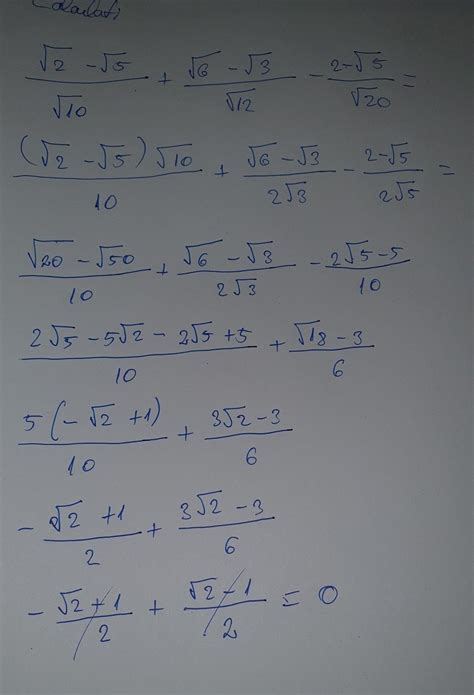 Calculati
(√2 - √5)/√10 + (√6 - √3)/√12 - (2-√5)/√20 =
((√2 - √5)√10)/10 + (√6 - √3)/2√3 - (2-√5)/2√5 =
(√20 - √50)/10 + (√6 - √3)/2√3 - (2√5-5)/10
(2√5 - 5√2 - 2√5 + 5)/10 + (√18 - 3)/6
5(-√2 + 1)/10 + (3√2 - 3)/6
- (√2 + 1)/2 + (3√2 - 3)/6
- (√2 + 1)/2 + (√2 - 1)/2 = 0